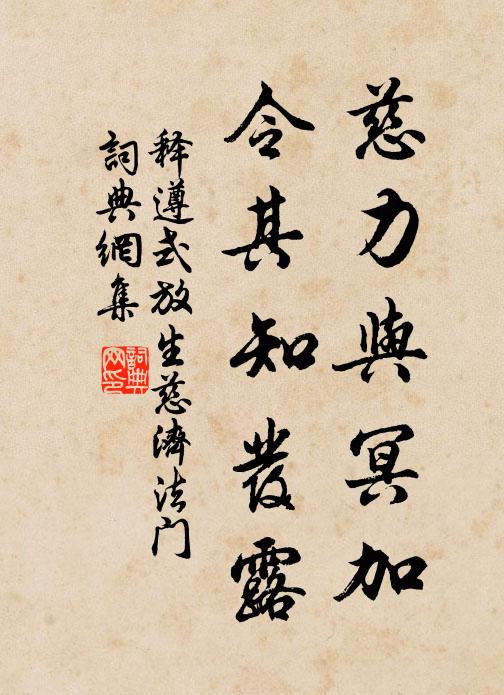 慈力與冥加
令其知發露
释遵式放生慈濟法门
詞典網集
詞典网印